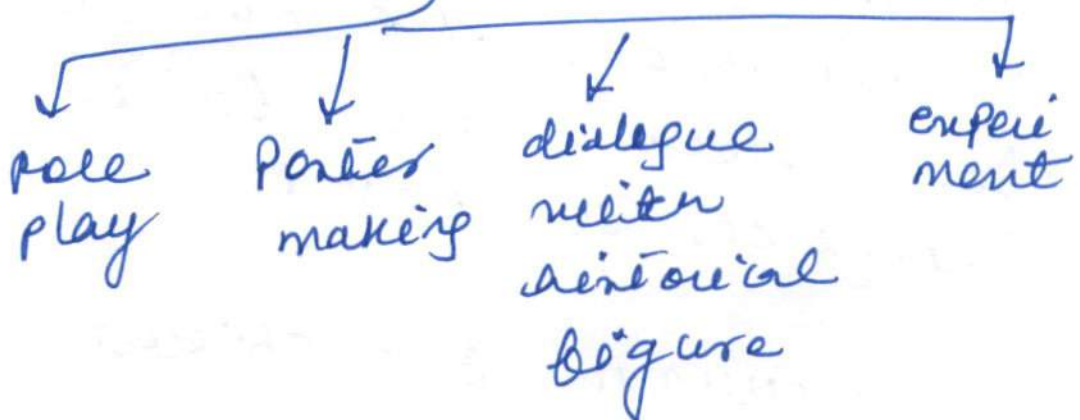 role
play
Poster
making
dialogue
with
historical
figure
experi
ment